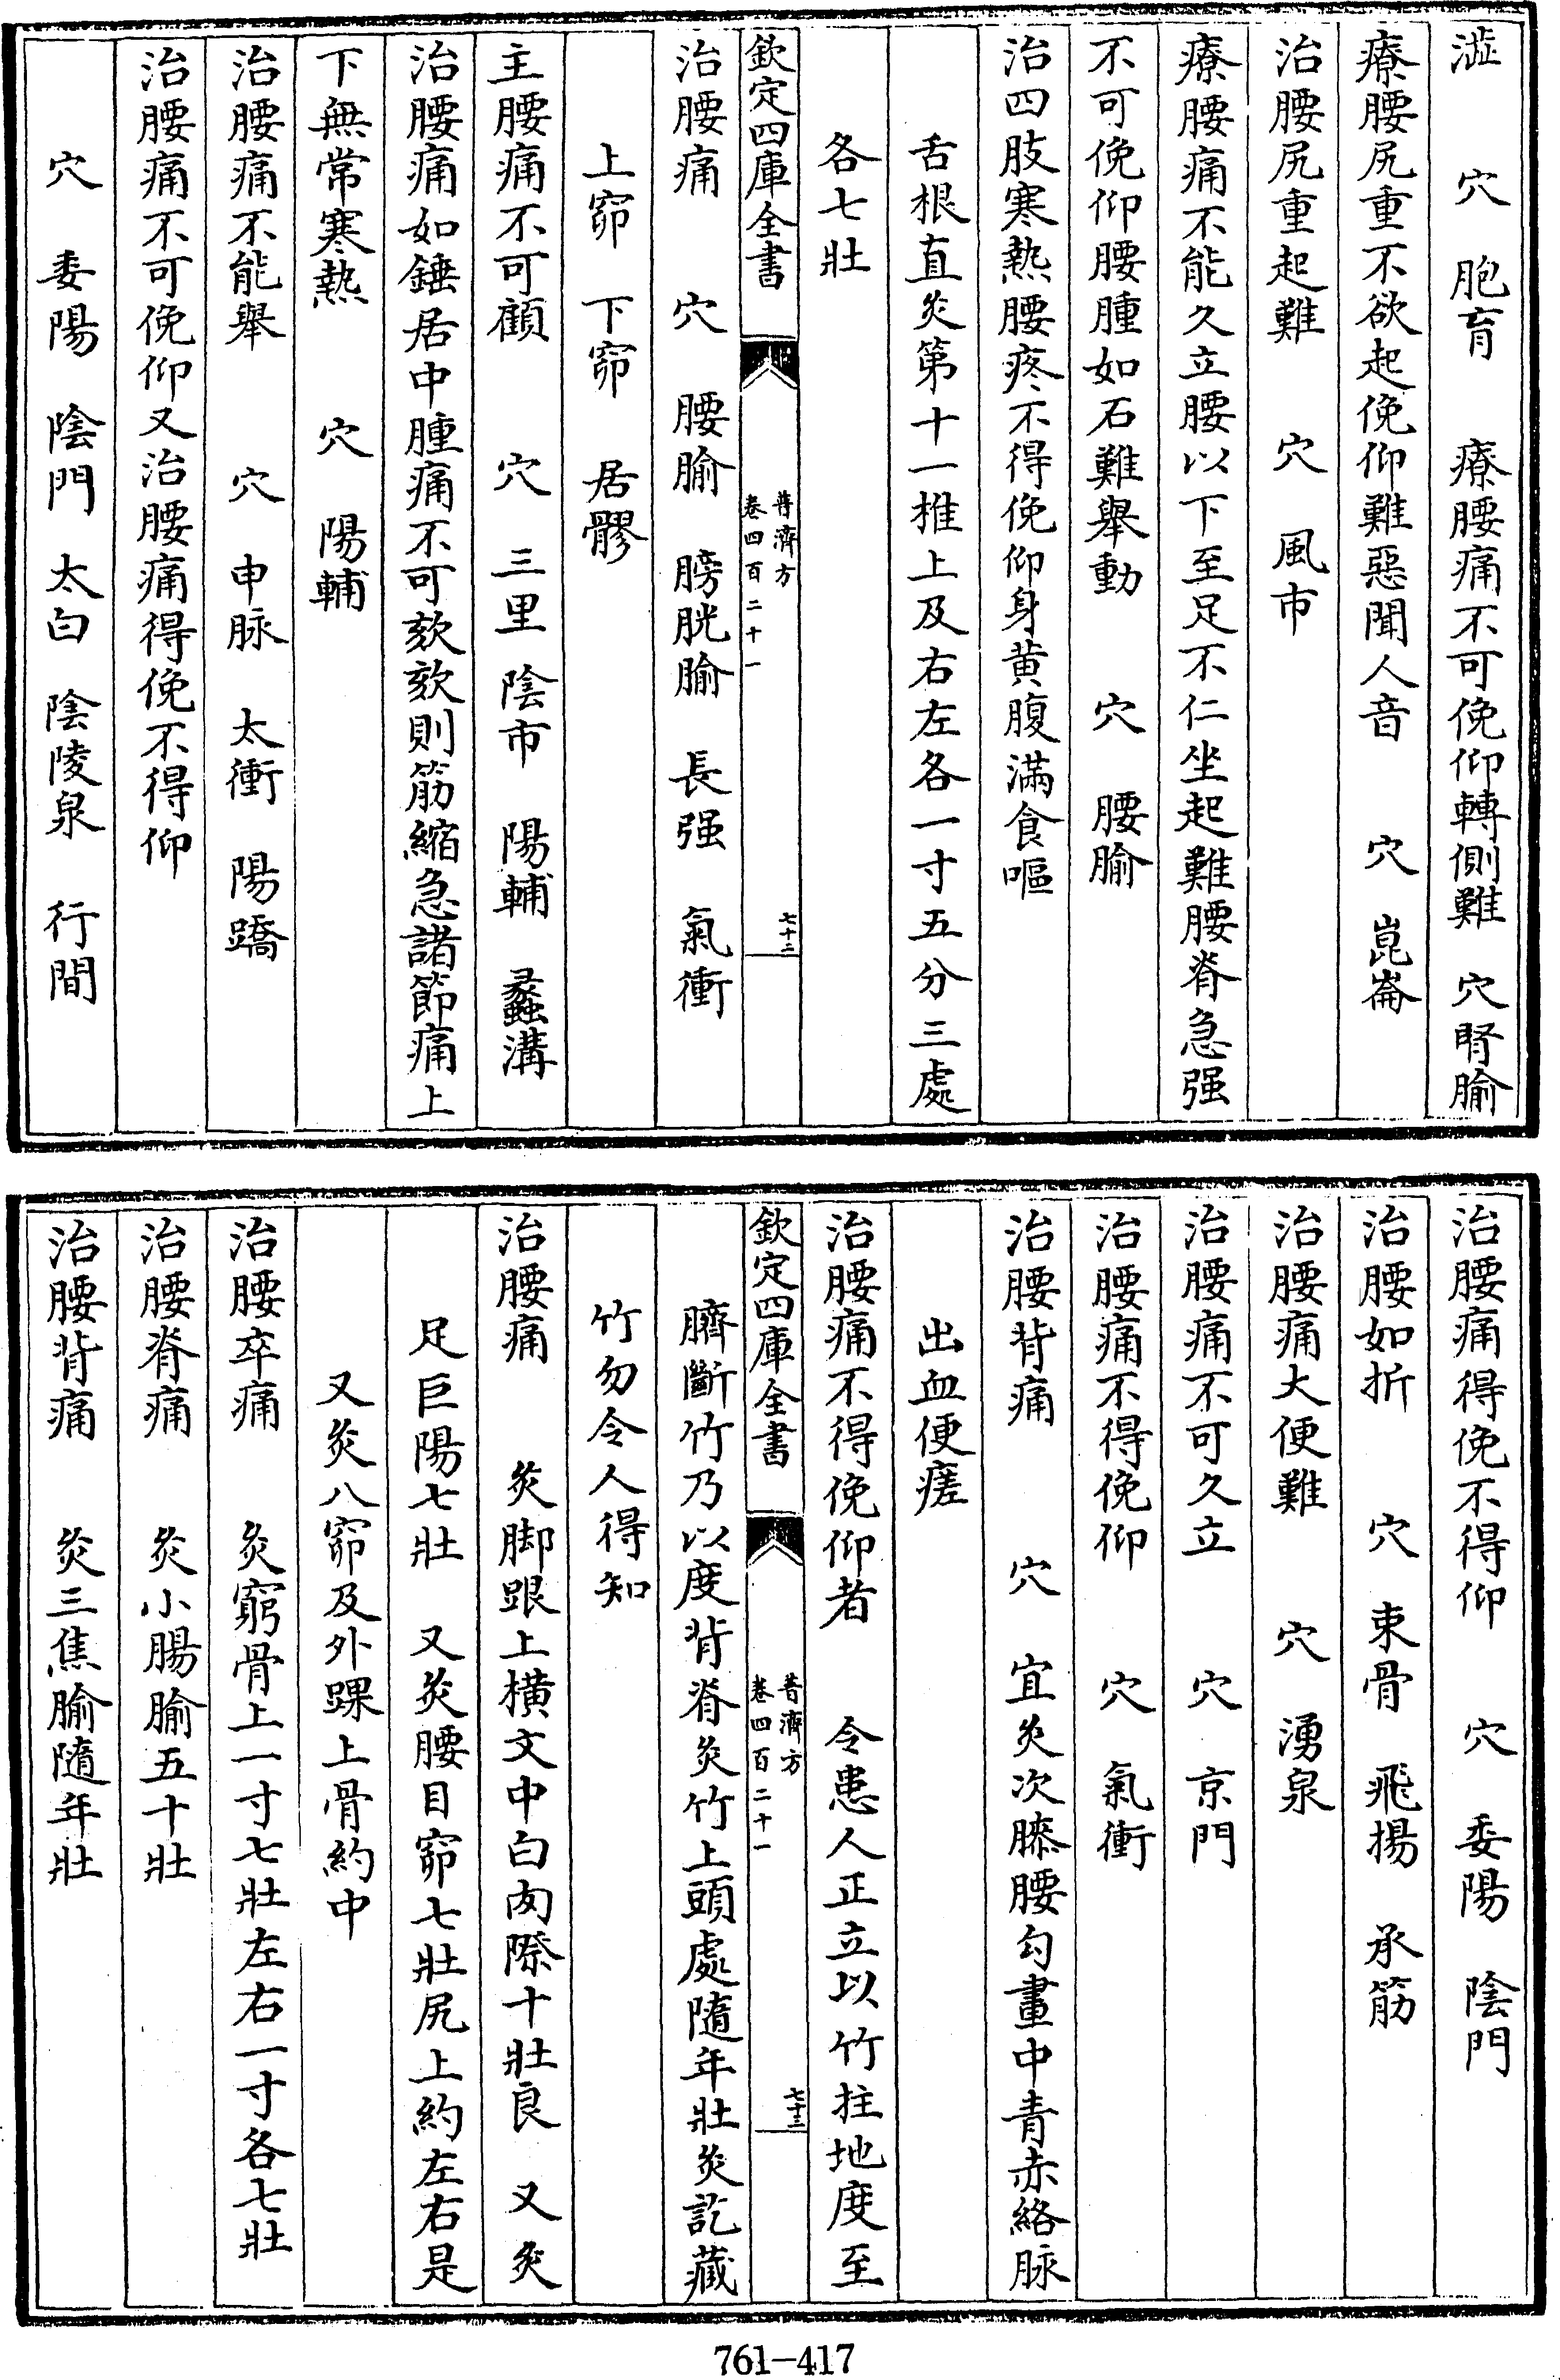 澁　穴　胞肓　療腰痛不可俛仰轉側難　穴腎腧
療腰尻重不欲起俛仰難惡聞人音　穴　崑崙
治腰尻重起難　穴　風市
療腰痛不能久立腰以下至足不仁坐起難腰脊急强
不可俛仰腰腫如石難舉動　穴　腰腧
治四肢寒熱腰疼不得俛仰身黄腹滿食嘔
舌根直灸第十一推上及右左各一寸五分三處
各七壯
欽定四庫全書　普濟方　卷四百二十一　七十二
治腰痛　穴　腰腧　膀胱腧　長强　氣衝
上窌　下窌　居髎
主腰痛不可顧　穴　三里　陰市　陽輔　蠡溝
治腰痛如錘居中腫痛不可欬欬則筋縮急諸節痛上
下無常寒熱　穴　陽輔
治腰痛不能舉　穴　申脉　太衝　陽蹻
治腰痛不可俛仰又治腰痛得俛不得仰
穴　委陽　陰門　太白　陰陵泉　行間
治腰痛得俛不得仰　穴　委陽　陰門
治腰如折　穴　束骨　飛揚　承筋
治腰痛大便難　穴　湧泉
治腰痛不可久立　穴　京門
治腰痛不得俛仰　穴　氣衝
治腰背痛　穴　宜灸次膝腰勾畫中青赤絡脉
出血便瘥
治腰痛不得俛仰者　令患人正立以竹拄地度至
欽定四庫全書　普濟方　卷四百二十一　七十三
臍斷竹乃以度背脊灸竹上頭處隨年壯灸訖藏
竹勿令人得知
治腰痛　灸脚跟上横文中白肉際十壯良　又灸
足巨陽七壯　又灸腰目窌七壯尻上約左右是
又灸八窌及外踝上骨約中
治腰卒痛　灸窮骨上一寸七壯左右一寸各七壯
治腰脊痛　灸小腸腧五十壯
治腰背痛　灸三焦腧隨年壯
761-417